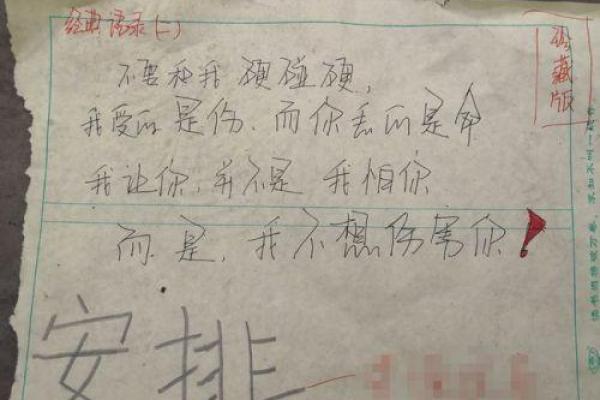 经典语录(一)
珍藏版
不要和我硬碰硬,
我受的是伤.而你丢的是命
我让你,并不是 我怕你
而是,我不想伤害你!
安排